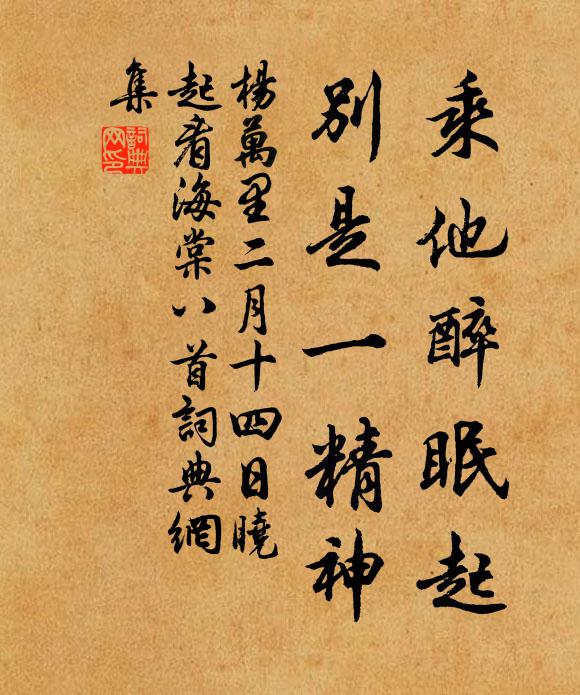 乘他醉眠起
別是一精神
楊萬里二月十四日曉
起看海棠八首詞典網
集
詞典
网印